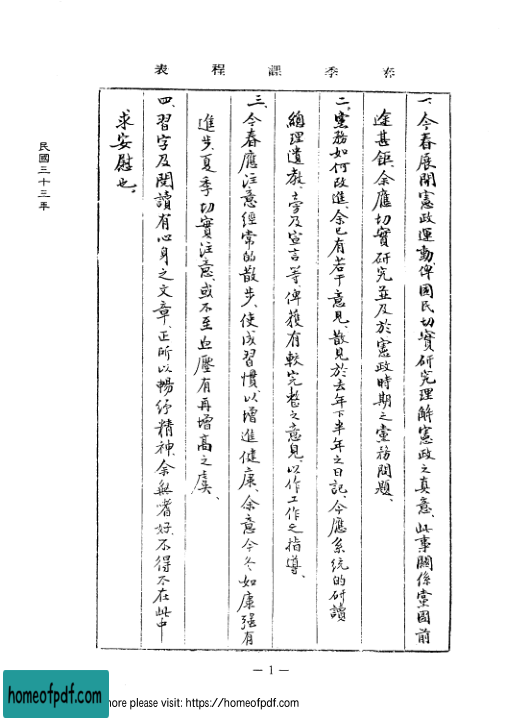 春季課程表
一、今春展開憲政運動、俾國民切實研究理解憲政之真意、此事關係黨國前
途甚鉅、余應切實研究並及於憲政時期之黨務問題、
二、黨務如何改進、余已有若干意見、散見於去年下半年之日記、今應系統的研讀
總理遺教、旁及宣言等、俾獲有較完整之意見、以作工作之指導、
三、今春應注意經常的散步、使成習慣、以增進健康、余意今冬如康强有
進步、夏季切實注意、或不至血壓有再增高之虞、
四、習字及閱讀有心身之文章、正所以暢紓精神、余無嗜好、不得不在此中
求安慰也。
民國三十三年
— 1 —
homeofpdf.com
more please visit: https://homeofpdf.com